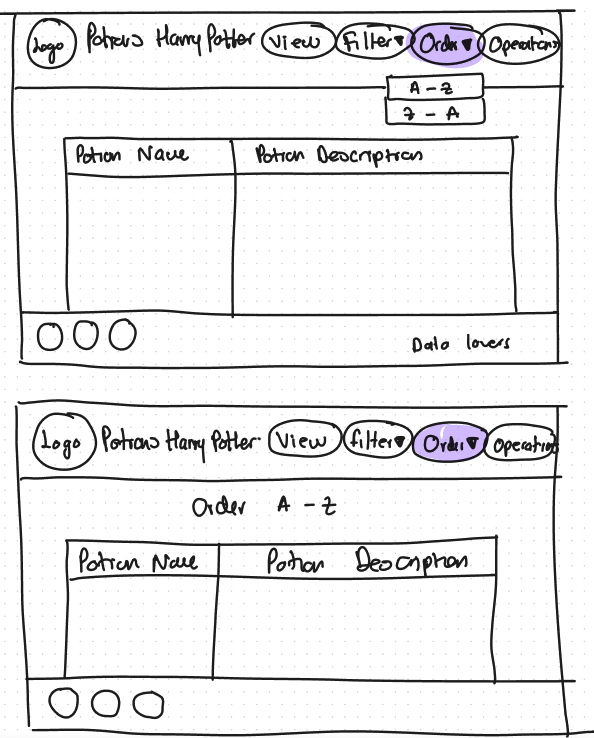 Logo Potions Harry Potter View Filter▼ Order▼ Operations
A - Z
Z - A
Potion Name Potion Description
Data lovers
Logo Potions Harry Potter View filter▼ Order▼ Operation
Order A - Z
Potion Name Potion Description